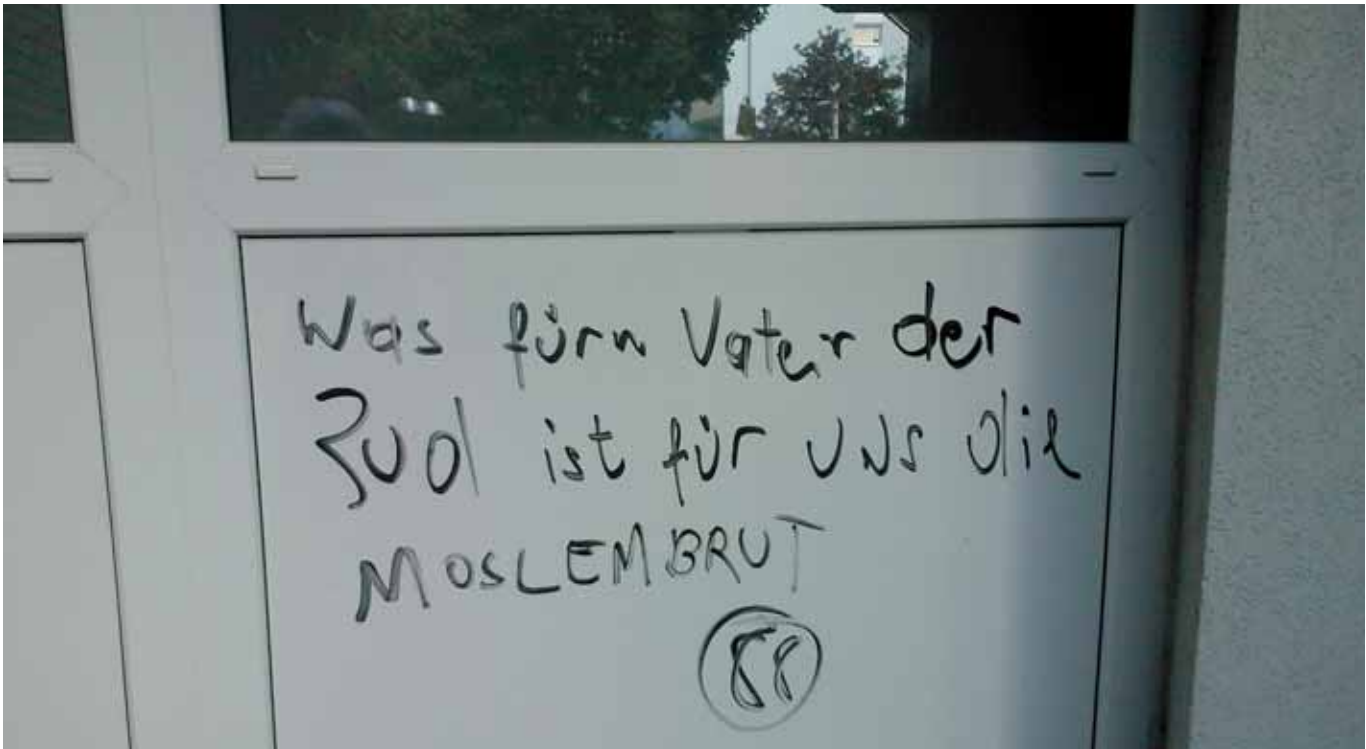 Was fürn Vater der
Jud ist für uns die
MOSLEMBRUT
88